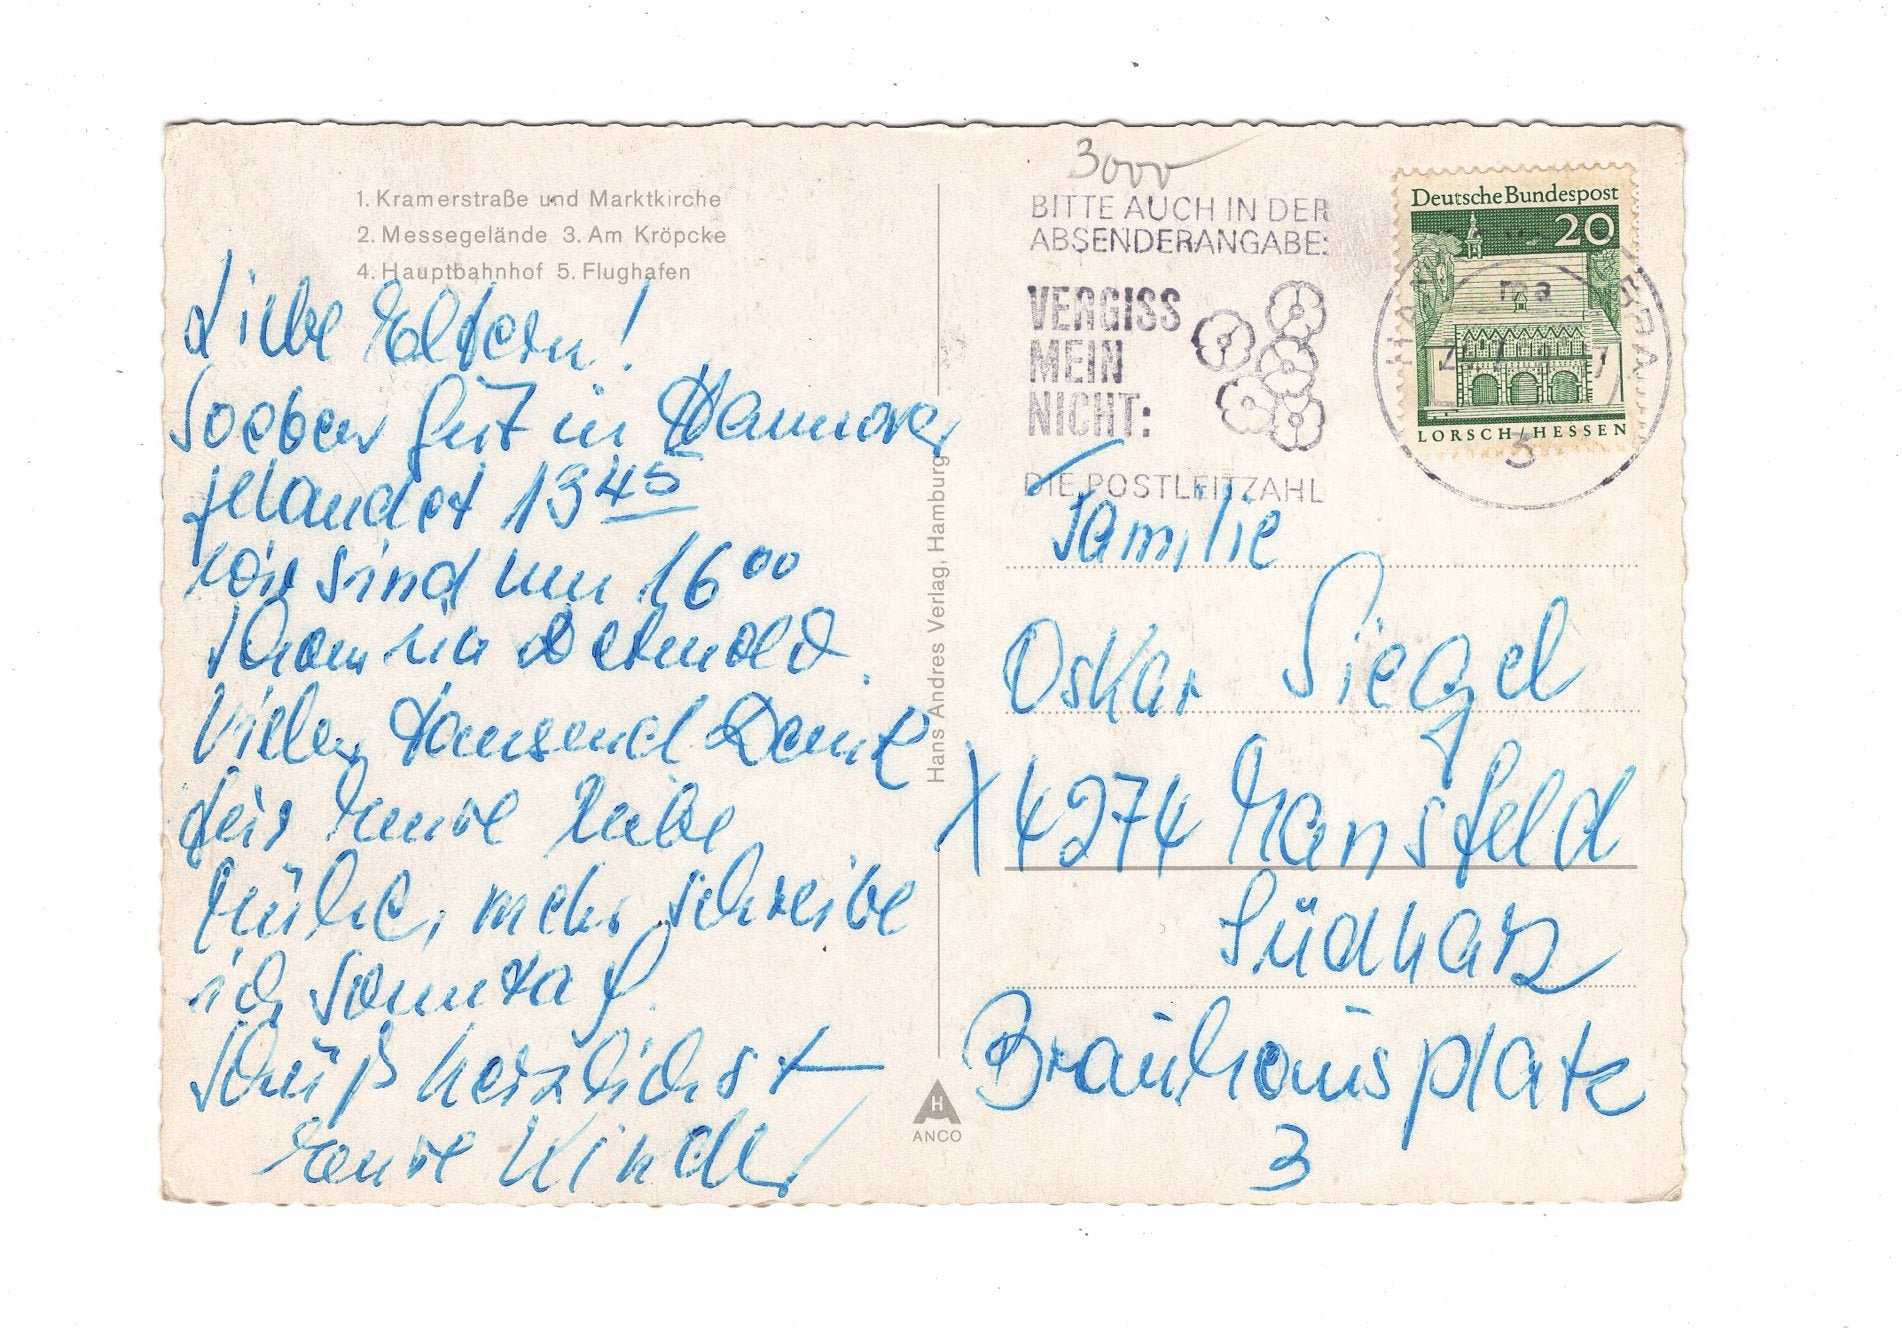 3000
1. Kramerstraße und Marktkirche
2. Messegelände 3. Am Kröpcke
4. Hauptbahnhof 5. Flughafen
Liebe Eltern!
Soeben gut in Hannover
gelandet 13 45
wir sind um 16 00
schon in Detmold.
Vielen tausend Dank
für Eure Liebe
Mühe, mehr schreibe
ich Sonntag.
Gruß herzlichst
Eure Kinder
Hans Andres Verlag, Hamburg
H
ANCO
BITTE AUCH IN DER
ABSENDERANGABE:
VERGISS
MEIN
NICHT:
DIE POSTLEITZAHL
Deutsche Bundespost
20
LORSCH/HESSEN
ma
3
Familie
Oskar Siegel
X 4274 Mansfeld
Südharz
Brauhausplatz
3